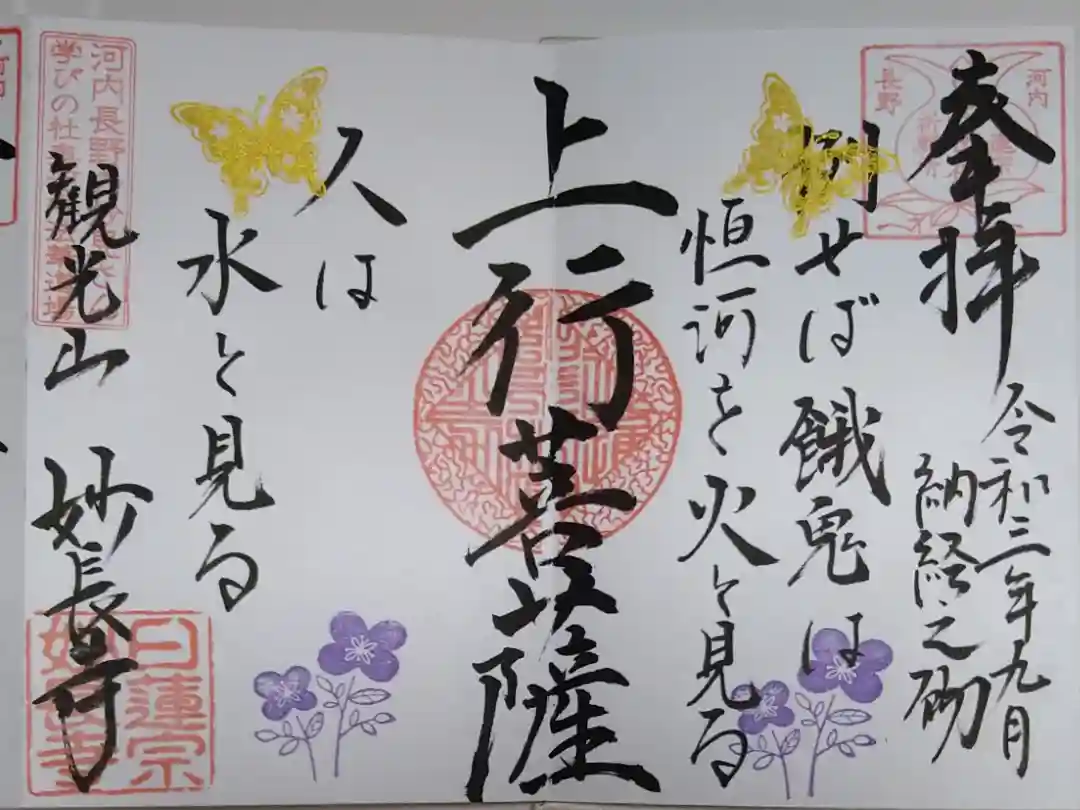 奉拝
令和三年九月
納経之砌
河内
長野
例せば餓鬼は
恒河を火と見る
上行菩薩
人は
水と見る
観光山 妙長寺
河内長野
学びの社
日蓮宗
妙長寺